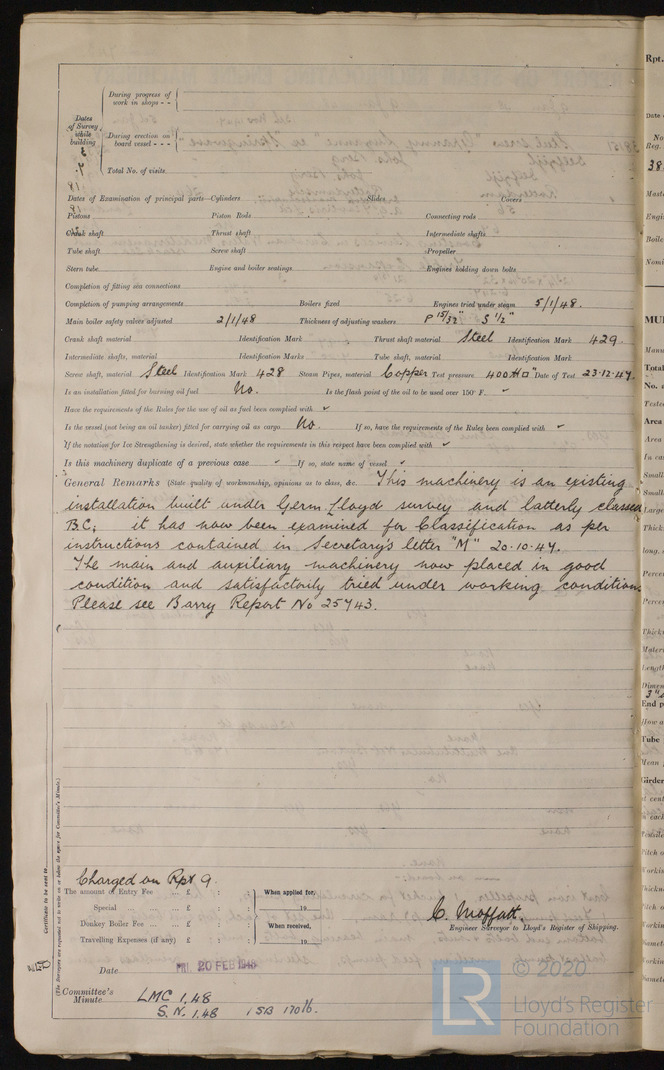 During progress of
work in shops - -
Dates
of Survey
while
building
During erection on
board vessel - - -
Total No. of visits
Dates of Examination of principal parts—Cylinders Slides Covers
Pistons Piston Rods Connecting rods
Crank shaft Thrust shaft Intermediate shafts
Tube shaft Screw shaft Propeller
Stern tube Engine and boiler seatings Engines holding down bolts
Completion of fitting sea connections
Completion of pumping arrangements Boilers fixed Engines tried under steam 5/1/48.
Main boiler safety valves adjusted 2/1/48 Thickness of adjusting washers P 15/32" S 1/2"
Crank shaft material Identification Mark Thrust shaft material Steel Identification Mark 429.
Intermediate shafts, material Identification Marks Tube shaft, material Identification Mark
Screw shaft, material Steel Identification Mark 428 Steam Pipes, material Copper Test pressure 400 #□" Date of Test 23.12.47.
Is an installation fitted for burning oil fuel No. Is the flash point of the oil to be used over 150° F. ✓
Have the requirements of the Rules for the use of oil as fuel been complied with ✓
Is the vessel (not being an oil tanker) fitted for carrying oil as cargo No. If so, have the requirements of the Rules been complied with ✓
If the notation for Ice Strengthening is desired, state whether the requirements in this respect have been complied with ✓
Is this machinery duplicate of a previous case ✓ If so, state name of vessel ✓
General Remarks (State quality of workmanship, opinions as to class, &c. This machinery is an existing
installation built under Germ. Lloyd survey and latterly classed
B.C; it has now been examined for Classification as per
instructions contained in Secretary's letter "M" 20.10.47.
The main and auxiliary machinery now placed in good
condition and satisfactorily tried under working conditions
Please see Barry Report No 25743.
Charged on Rpt 9.
The amount of Entry Fee ... £ : :
Special ... £ : :
Donkey Boiler Fee ... £ : :
Travelling Expenses (if any) £ : :
When applied for,
19
When received,
19
C. Moffatt.
Engineer Surveyor to Lloyd's Register of Shipping.
Date FRI. 20 FEB 1948
Committee's
Minute LMC 1.48
S.N. 1.48 1 SB 170 lb.
Certificate to be sent to
(The Surveyors are requested not to write on or below the space for Committee's Minute.)
© 2020
LR
Lloyd's Register
Foundation